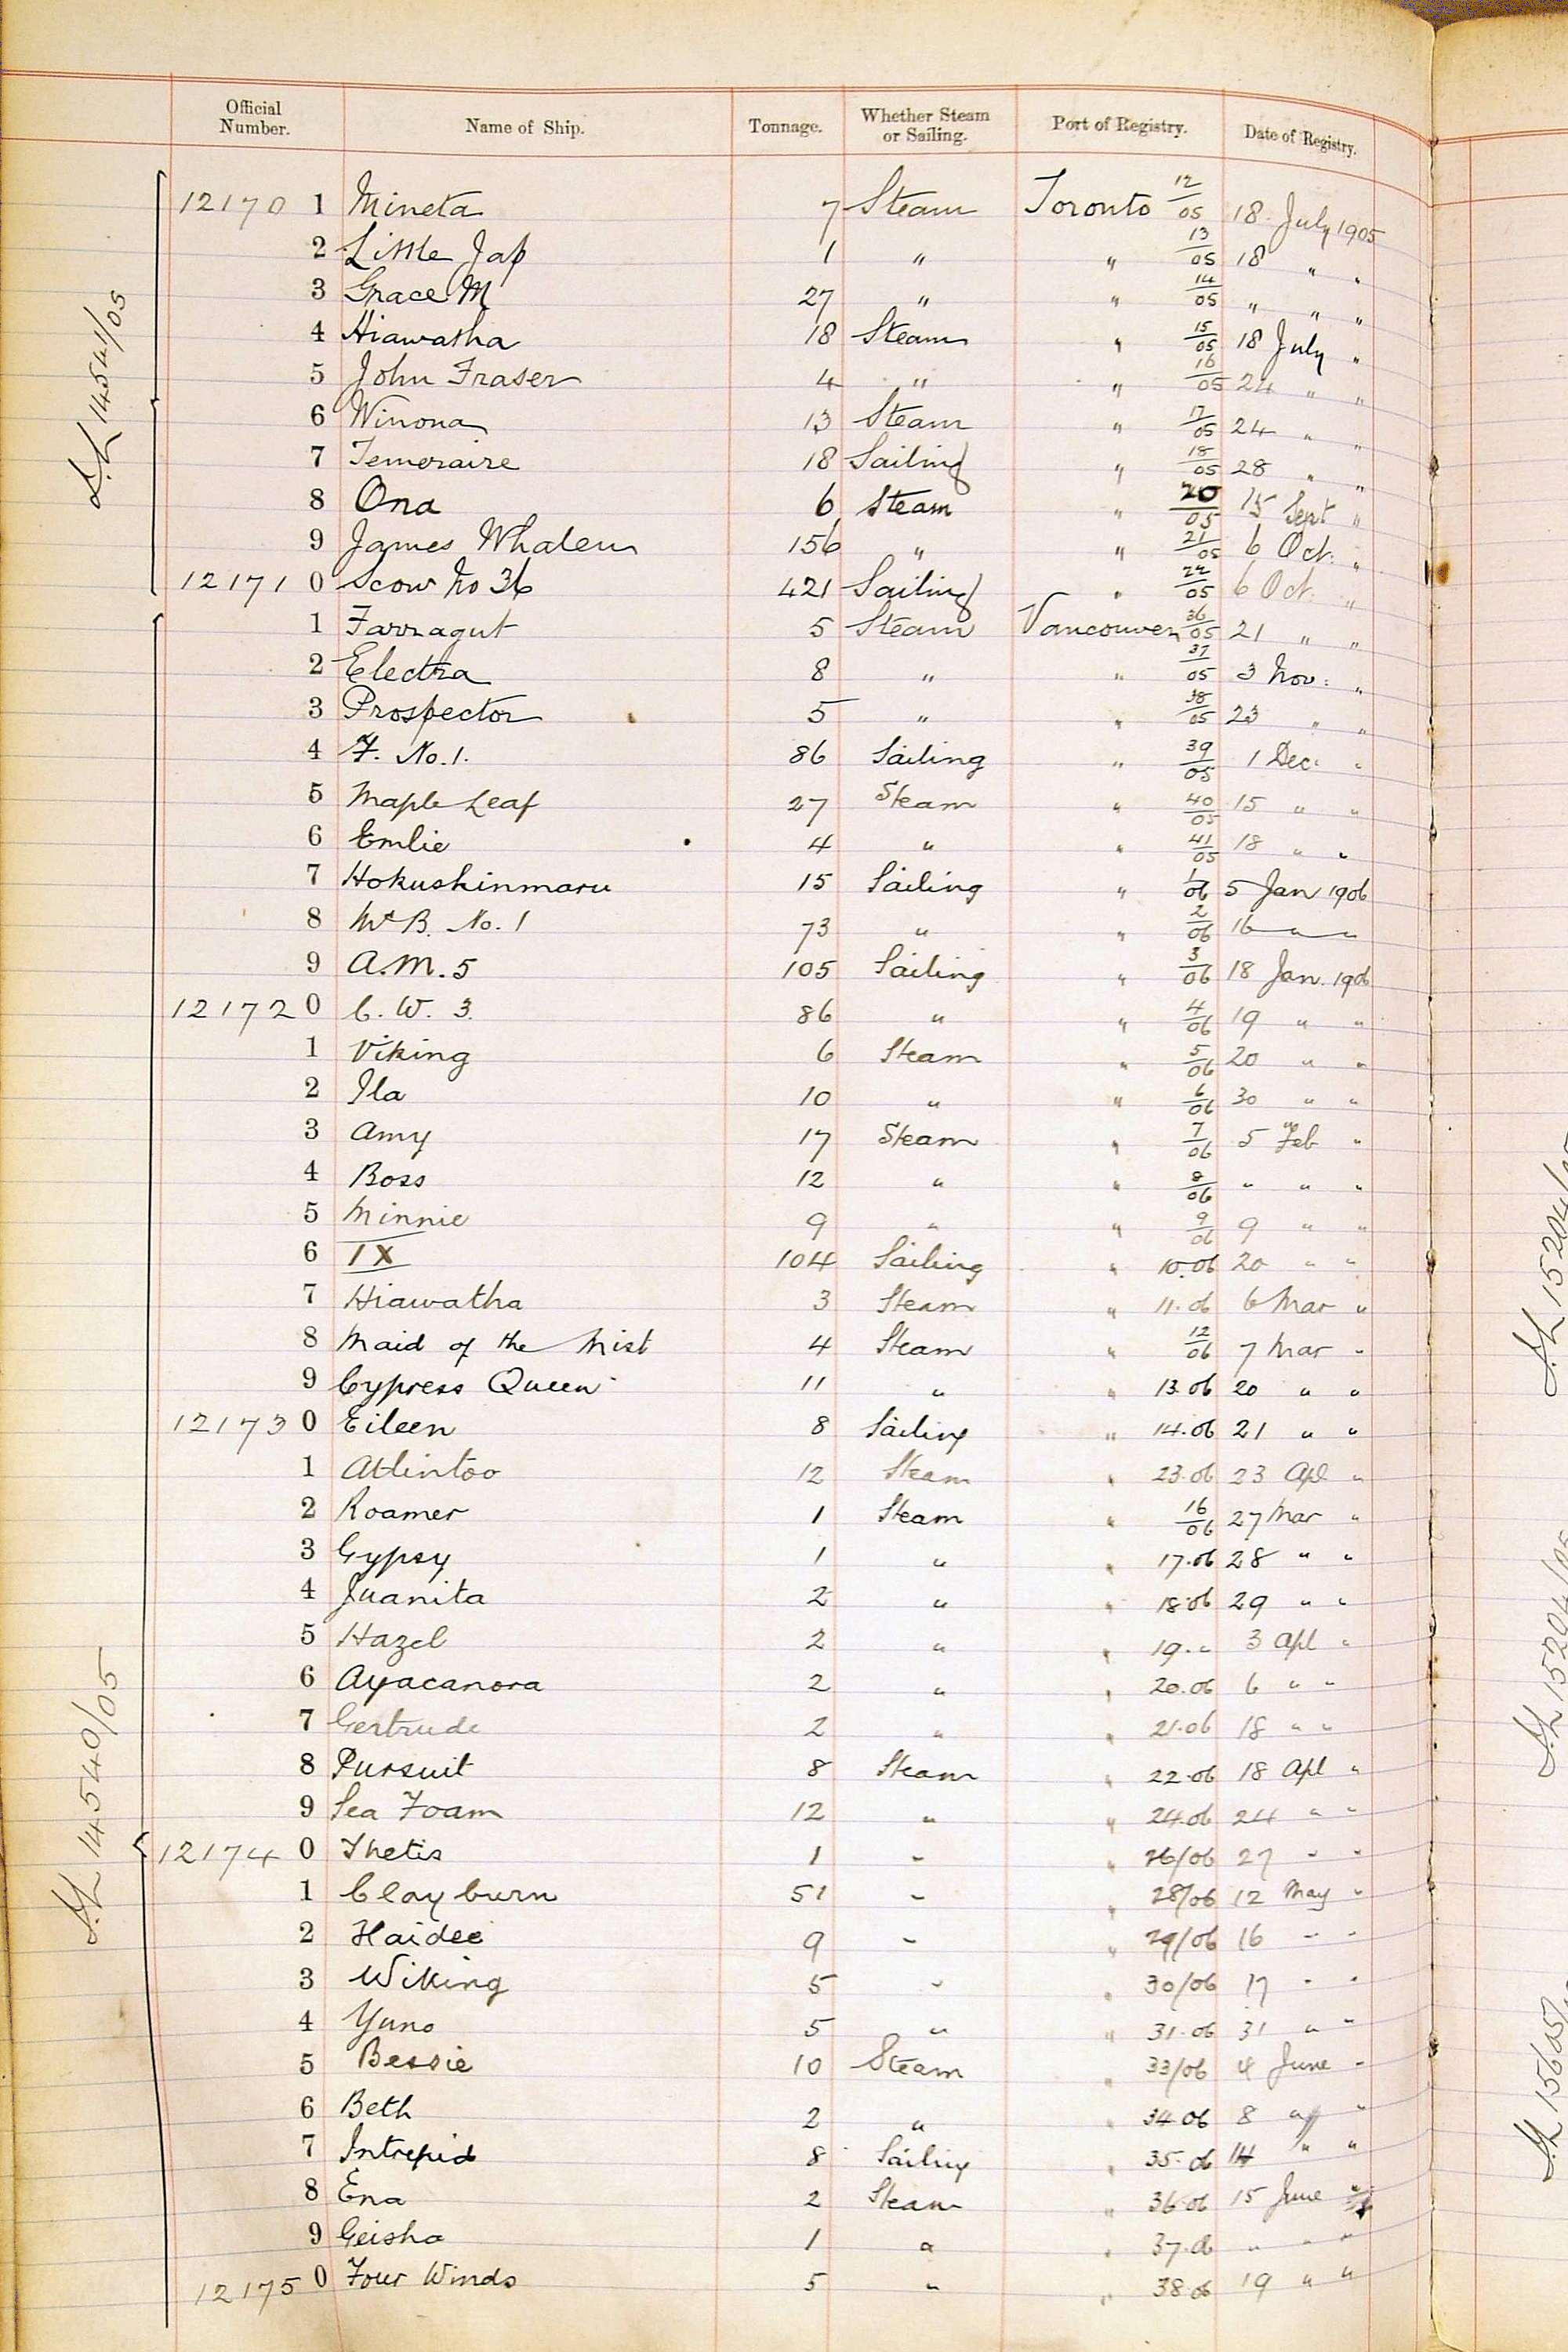 Official Number. Name of Ship. Tonnage. Whether Steam or Sailing. Port of Registry. Date of Registry.
12170 1 Mineta 7 Steam Toronto 12/05 18 July 1905
2 Little Jap 1 " " 13/05 18 " "
3 Grace M 27 " " 14/05 " " "
4 Hiawatha 18 Steam " 15/05 18 July "
5 John Fraser 4 " " 16/05 24 " "
6 Winona 13 Steam " 17/05 24 " "
7 Temeraire 18 Sailing " 18/05 28 " "
8 Ona 6 Steam " 20/05 15 Sept "
9 James Whalen 156 " " 21/05 6 Oct. "
12171 0 Scow No 36 421 Sailing " 22/05 6 Oct. "
1 Farragut 5 Steam Vancouver 36/05 21 " "
2 Electra 8 " " 37/05 3 Nov: "
3 Prospector 5 " " 38/05 23 " "
4 F. No. 1. 86 Sailing " 39/05 1 Dec. "
5 Maple Leaf 27 Steam " 40/05 15 " "
6 Emlie 4 " " 41/05 18 " "
7 Hokushinmaru 15 Sailing " 1/06 5 Jan 1906
8 B. No. 1 73 " " 2/06 16 " "
9 A.M. 5 105 Sailing " 3/06 18 Jan. 1906
12172 0 C. W. 3. 86 " " 4/06 19 " "
1 Viking 6 Steam " 5/06 20 " "
2 Ila 10 " " 6/06 30 " "
3 Amy 17 Steam " 7/06 5 Feb "
4 Boss 12 " " 8/06 " " "
5 Minnie 9 " " 9/06 9 " "
6 IX 104 Sailing " 10.06 20 " "
7 Hiawatha 3 Steam " 11.06 6 Mar "
8 Maid of the Mist 4 Steam " 12/06 7 Mar "
9 Cypress Queen 11 " " 13.06 20 " "
12173 0 Eileen 8 Sailing " 14.06 21 " "
1 Atlintoo 12 Steam " 23.06 23 Apl "
2 Roamer 1 Steam " 16/06 27 Mar "
3 Gypsy 1 " " 17.06 28 " "
4 Juanita 2 " " 18.06 29 " "
5 Hazel 2 " " 19." 3 Apl "
6 Ayacanora 2 " " 20.06 6 " "
7 Gertrude 2 " " 21.06 18 " "
8 Pursuit 8 Steam " 22.06 18 Apl "
9 Sea Foam 12 " " 24.06 24 " "
12174 0 Thetis 1 " " 26/06 27 " "
1 Clayburn 51 " " 28/06 12 May "
2 Haidee 9 " " 29/06 16 " "
3 Wiking 5 " " 30/06 17 " "
4 Yuno 5 " " 31.06 31 " "
5 Bessie 10 Steam " 33/06 4 June "
6 Beth 2 " " 34.06 8 " "
7 Intrepid 8 Sailing " 35.06 14 " "
8 Ena 2 Steam " 36.06 15 June "
9 Geisha 1 " " 37.06 " " "
12175 0 Four Winds 5 " " 38.06 19 " "
14541/05
14540/05